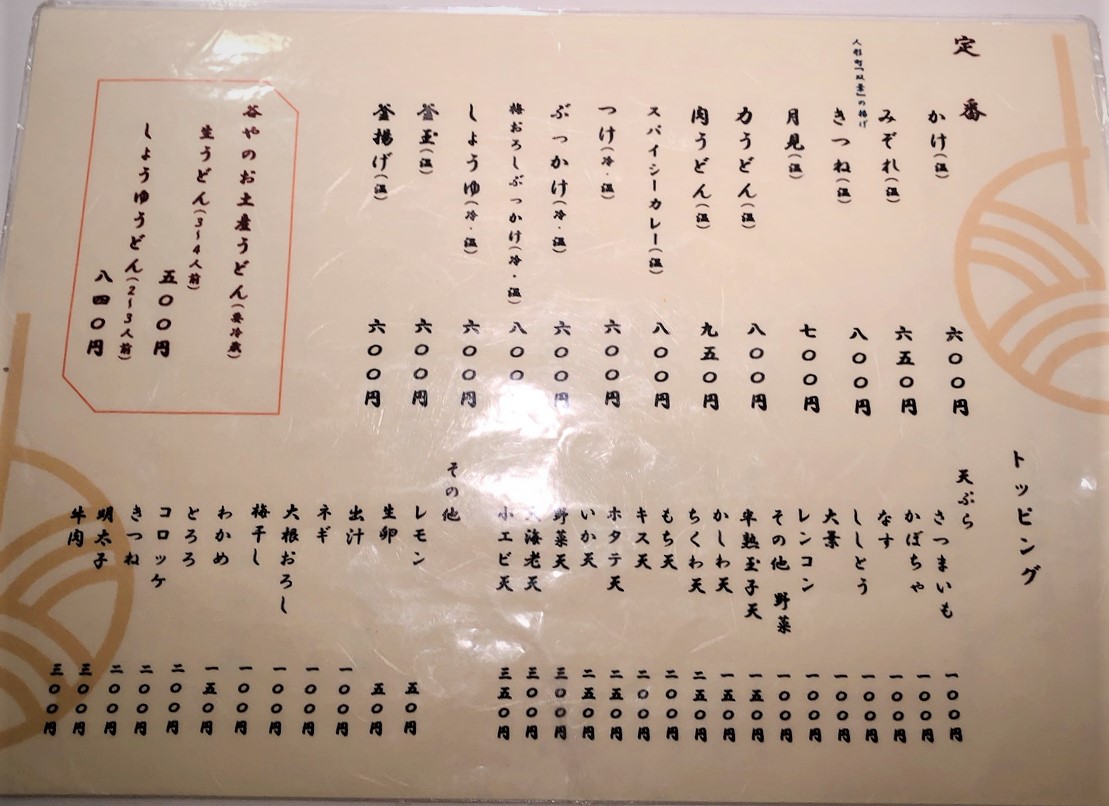 定番
かけ(温) 六〇〇円
みぞれ(温) 六五〇円
人形町「双葉」の揚げ
きつね(温) 八〇〇円
月見(温) 七〇〇円
力うどん(温) 八〇〇円
肉うどん(温) 九五〇円
スパイシーカレー(温) 八〇〇円
つけ(冷・温) 六〇〇円
ぶっかけ(冷・温) 六〇〇円
梅おろしぶっかけ(冷・温) 八〇〇円
しょうゆ(冷・温) 六〇〇円
釜玉(温) 六〇〇円
釜揚げ(温) 六〇〇円
谷やのお土産うどん(要冷蔵)
生うどん(3~4人前) 五〇〇円
しょうゆうどん(2~3人前) 八四〇円
トッピング
天ぷら
さつまいも 一〇〇円
かぼちゃ 一〇〇円
なす 一〇〇円
ししとう 一〇〇円
大葉 一〇〇円
レンコン 一〇〇円
その他 野菜 一〇〇円
半熟玉子天 一五〇円
かしわ天 一五〇円
ちくわ天 二五〇円
もち天 二〇〇円
キス天 二〇〇円
ホタテ天 二五〇円
いか天 二五〇円
野菜天 三〇〇円
海老天 三〇〇円
小エビ天 三五〇円
その他
レモン 五〇円
生卵 五〇円
出汁 一〇〇円
ネギ 一〇〇円
大根おろし 一〇〇円
梅干し 一〇〇円
わかめ 一五〇円
とろろ 二〇〇円
コロッケ 二〇〇円
きつね 二〇〇円
明太子 三〇〇円
牛肉 三〇〇円